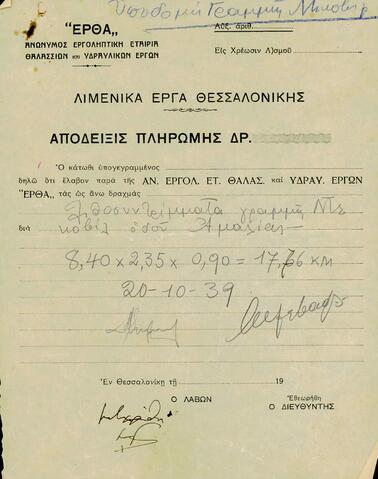 Ὑποδομὴ Γραμμὴ Ντεκοβὶλ
"ΕΡΘΑ„
ΑΝΩΝΥΜΟΣ ΕΡΓΟΛΗΠΤΙΚΗ ΕΤΑΙΡΙΑ
ΘΑΛΑΣΣΙΩΝ καὶ ΥΔΡΑΥΛΙΚΩΝ ΕΡΓΩΝ
Αὔξ. ἀριθ.
Εἰς Χρέωσιν Λ)σμοῦ
ΛΙΜΕΝΙΚΑ ΕΡΓΑ ΘΕΣΣΑΛΟΝΙΚΗΣ
ΑΠΟΔΕΙΞΙΣ ΠΛΗΡΩΜΗΣ ΔΡ.
Ὁ κάτωθι ὑπογεγραμμένος
δηλῶ ὅτι ἔλαβον παρὰ τῆς ΑΝ. ΕΡΓΟΛ. ΕΤ. ΘΑΛΑΣ. καὶ ΥΔΡΑΥ. ΕΡΓΩΝ
"ΕΡΘΑ„ τὰς ὡς ἄνω δραχμὰς
διὰ
Λιθοσυντρίμματα γραμμὴ Ντε
κοβὶλ ὁδοῦ Ἀμαλίας
8,40 x 2,35 x 0,90 = 17,76 κμ
20-10-39
Ἐν Θεσσαλονίκῃ τῇ 19
Ὁ ΛΑΒΩΝ
Ἐθεωρήθη
Ὁ ΔΙΕΥΘΥΝΤΗΣ